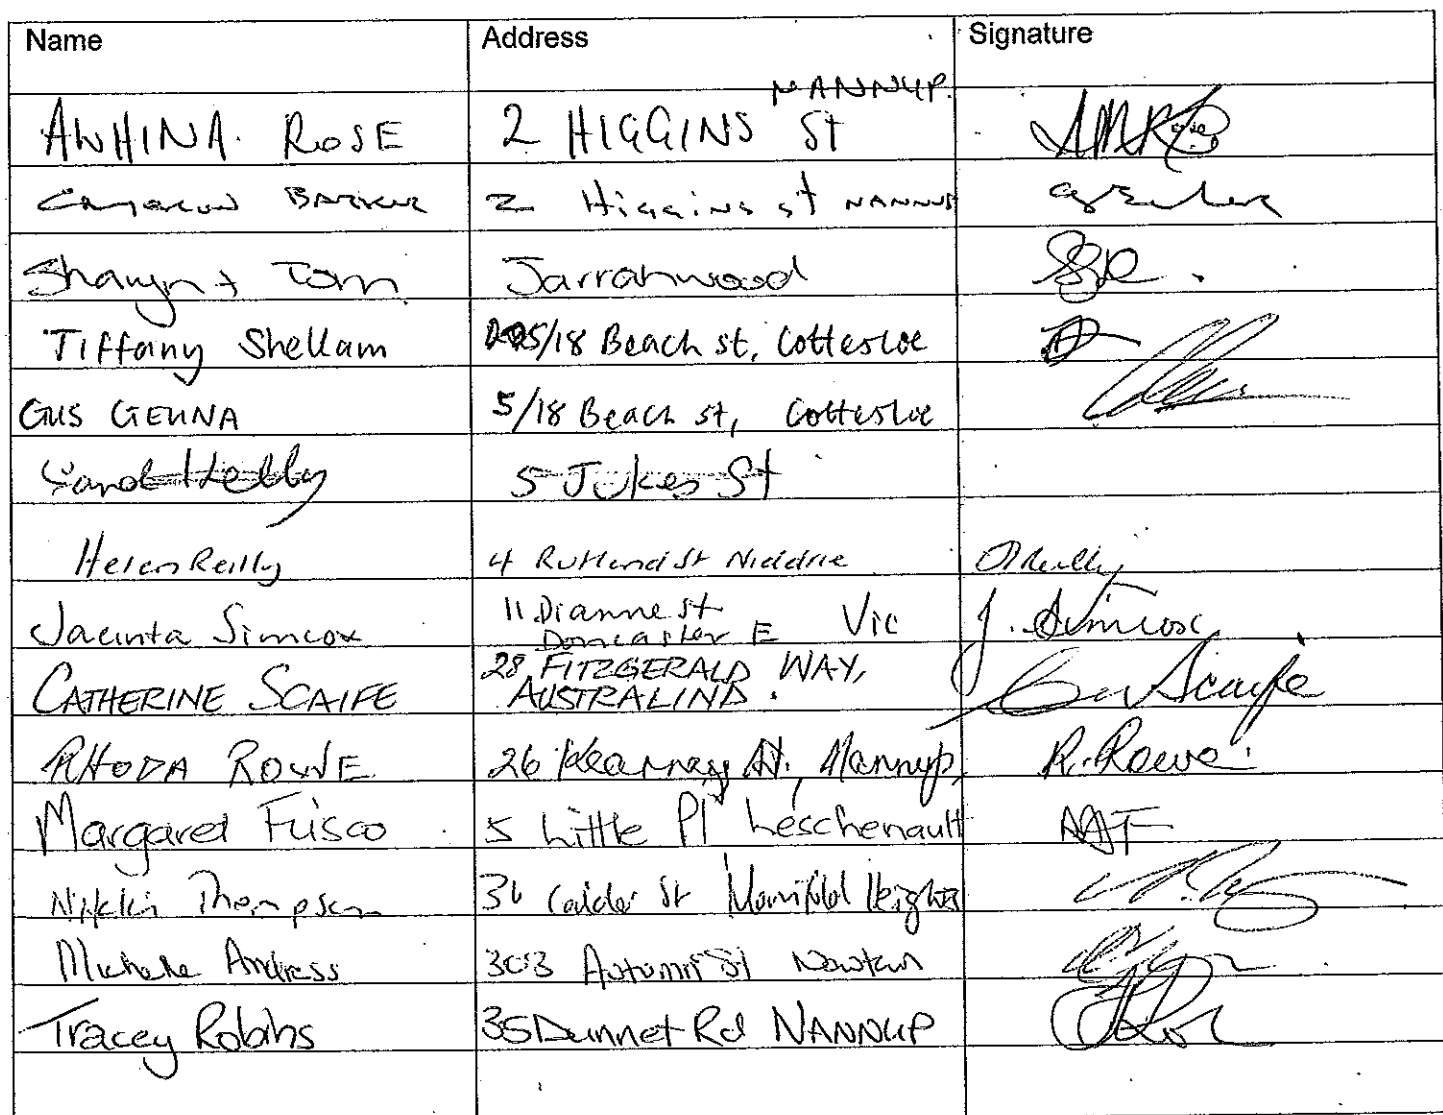 Name Address Signature
AWHINA. ROSE 2 HIGGINS ST NANNUP.
Cameron Barker 2 Higgins st NANNUP
Sharyn + Tom Jarrahwood
Tiffany Shellam 5/18 Beach st, Cottesloe
GUS GEUNA 5/18 Beach st, Cottesloe
Carol Kelly 5 Jukes St
Helen Reilly 4 Rutland St Niddrie
Jacinta Simcox 11 Dianne St Vic J. Simcox
Doncaster E
CATHERINE SCAIFE 28 FITZGERALD WAY, Scaife
AUSTRALIND.
RHODA ROWE 26 Kearney St., Nannup, R. Rowe
Margaret Fusco 5 Little Pl Leschenault MF
Nikki Thompson Calder St Manifold Heights
Michele Andress 303 Autumn St Newtown
Tracey Robins 35 Dunnet Rd NANNUP